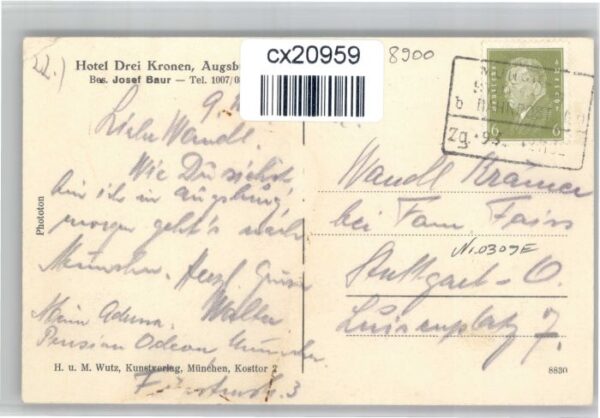 22.)
Hotel Drei Kronen, Augsb
Bes. Josef Baur — Tel. 1007/0
cx20959
8900
9.
Liebe Wandl.
Wie Du siehst
bin ich in Augsburg,
morgen geht's nach
München. Herzl. Grüsse
Walter
Meine Adresse.
Pension Odeon München
3
Phototon
H. u. M. Wutz, Kunstverlag, München, Kosttor 2
6 6
Zg.
Wandl Krämer
bei Fam.
N.0309E
Stuttgart-O.
Luisenplatz 7.
8830